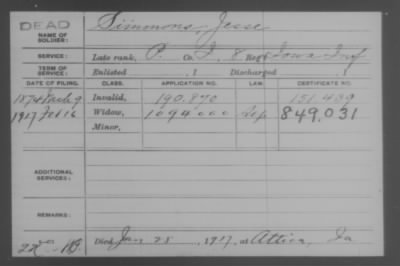 DEAD
NAME OF SOLDIER: Simmons, Jesse
SERVICE: Late rank, P. Co. I, 8 Reg't Iowa Inf
TERM OF SERVICE: Enlisted , 1 Discharged , 1
DATE OF FILING. CLASS. APPLICATION NO. LAW. CERTIFICATE NO.
1874 Invalid, 190.870 151.439
1917 Feb 16 Widow, 1094000 849,031
Minor,
ADDITIONAL SERVICES:
REMARKS:
Died Jan 25, 1917, at Attica, Ia